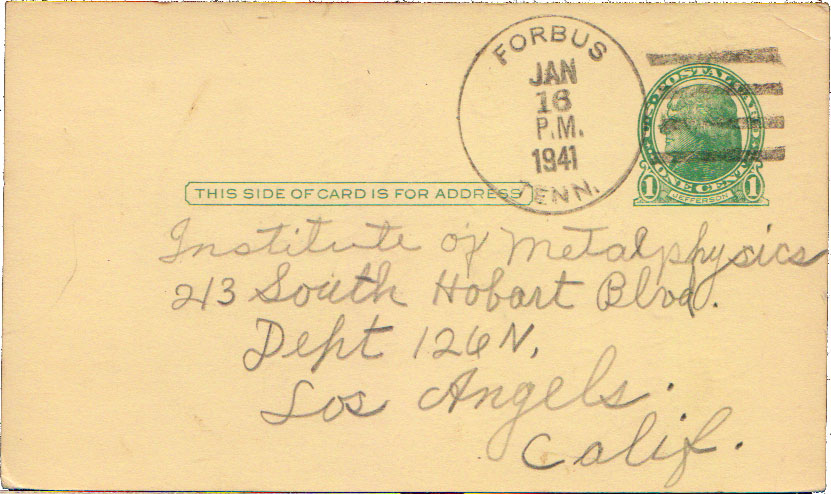 FORBUS
JAN
16
P.M.
1941
TENN.
U.S. POSTAL CARD
ONE CENT
1 1
JEFFERSON
THIS SIDE OF CARD IS FOR ADDRESS
Institute of Metalphysics
213 South Hobart Blvd.
Dept 126N,
Los Angels.
Calif.